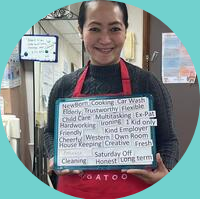 NewBorn Cooking Car Wash
Elderly Trustworthy Flexible
Child Care Multitasking Ex-Pat
Hardworking Ironing 1 Kid only
Friendly Kind Employer
Cheerful Western Own Room
House Keeping Creative Fresh
Saturday Off
Cleaning Honest Long term
GATOO